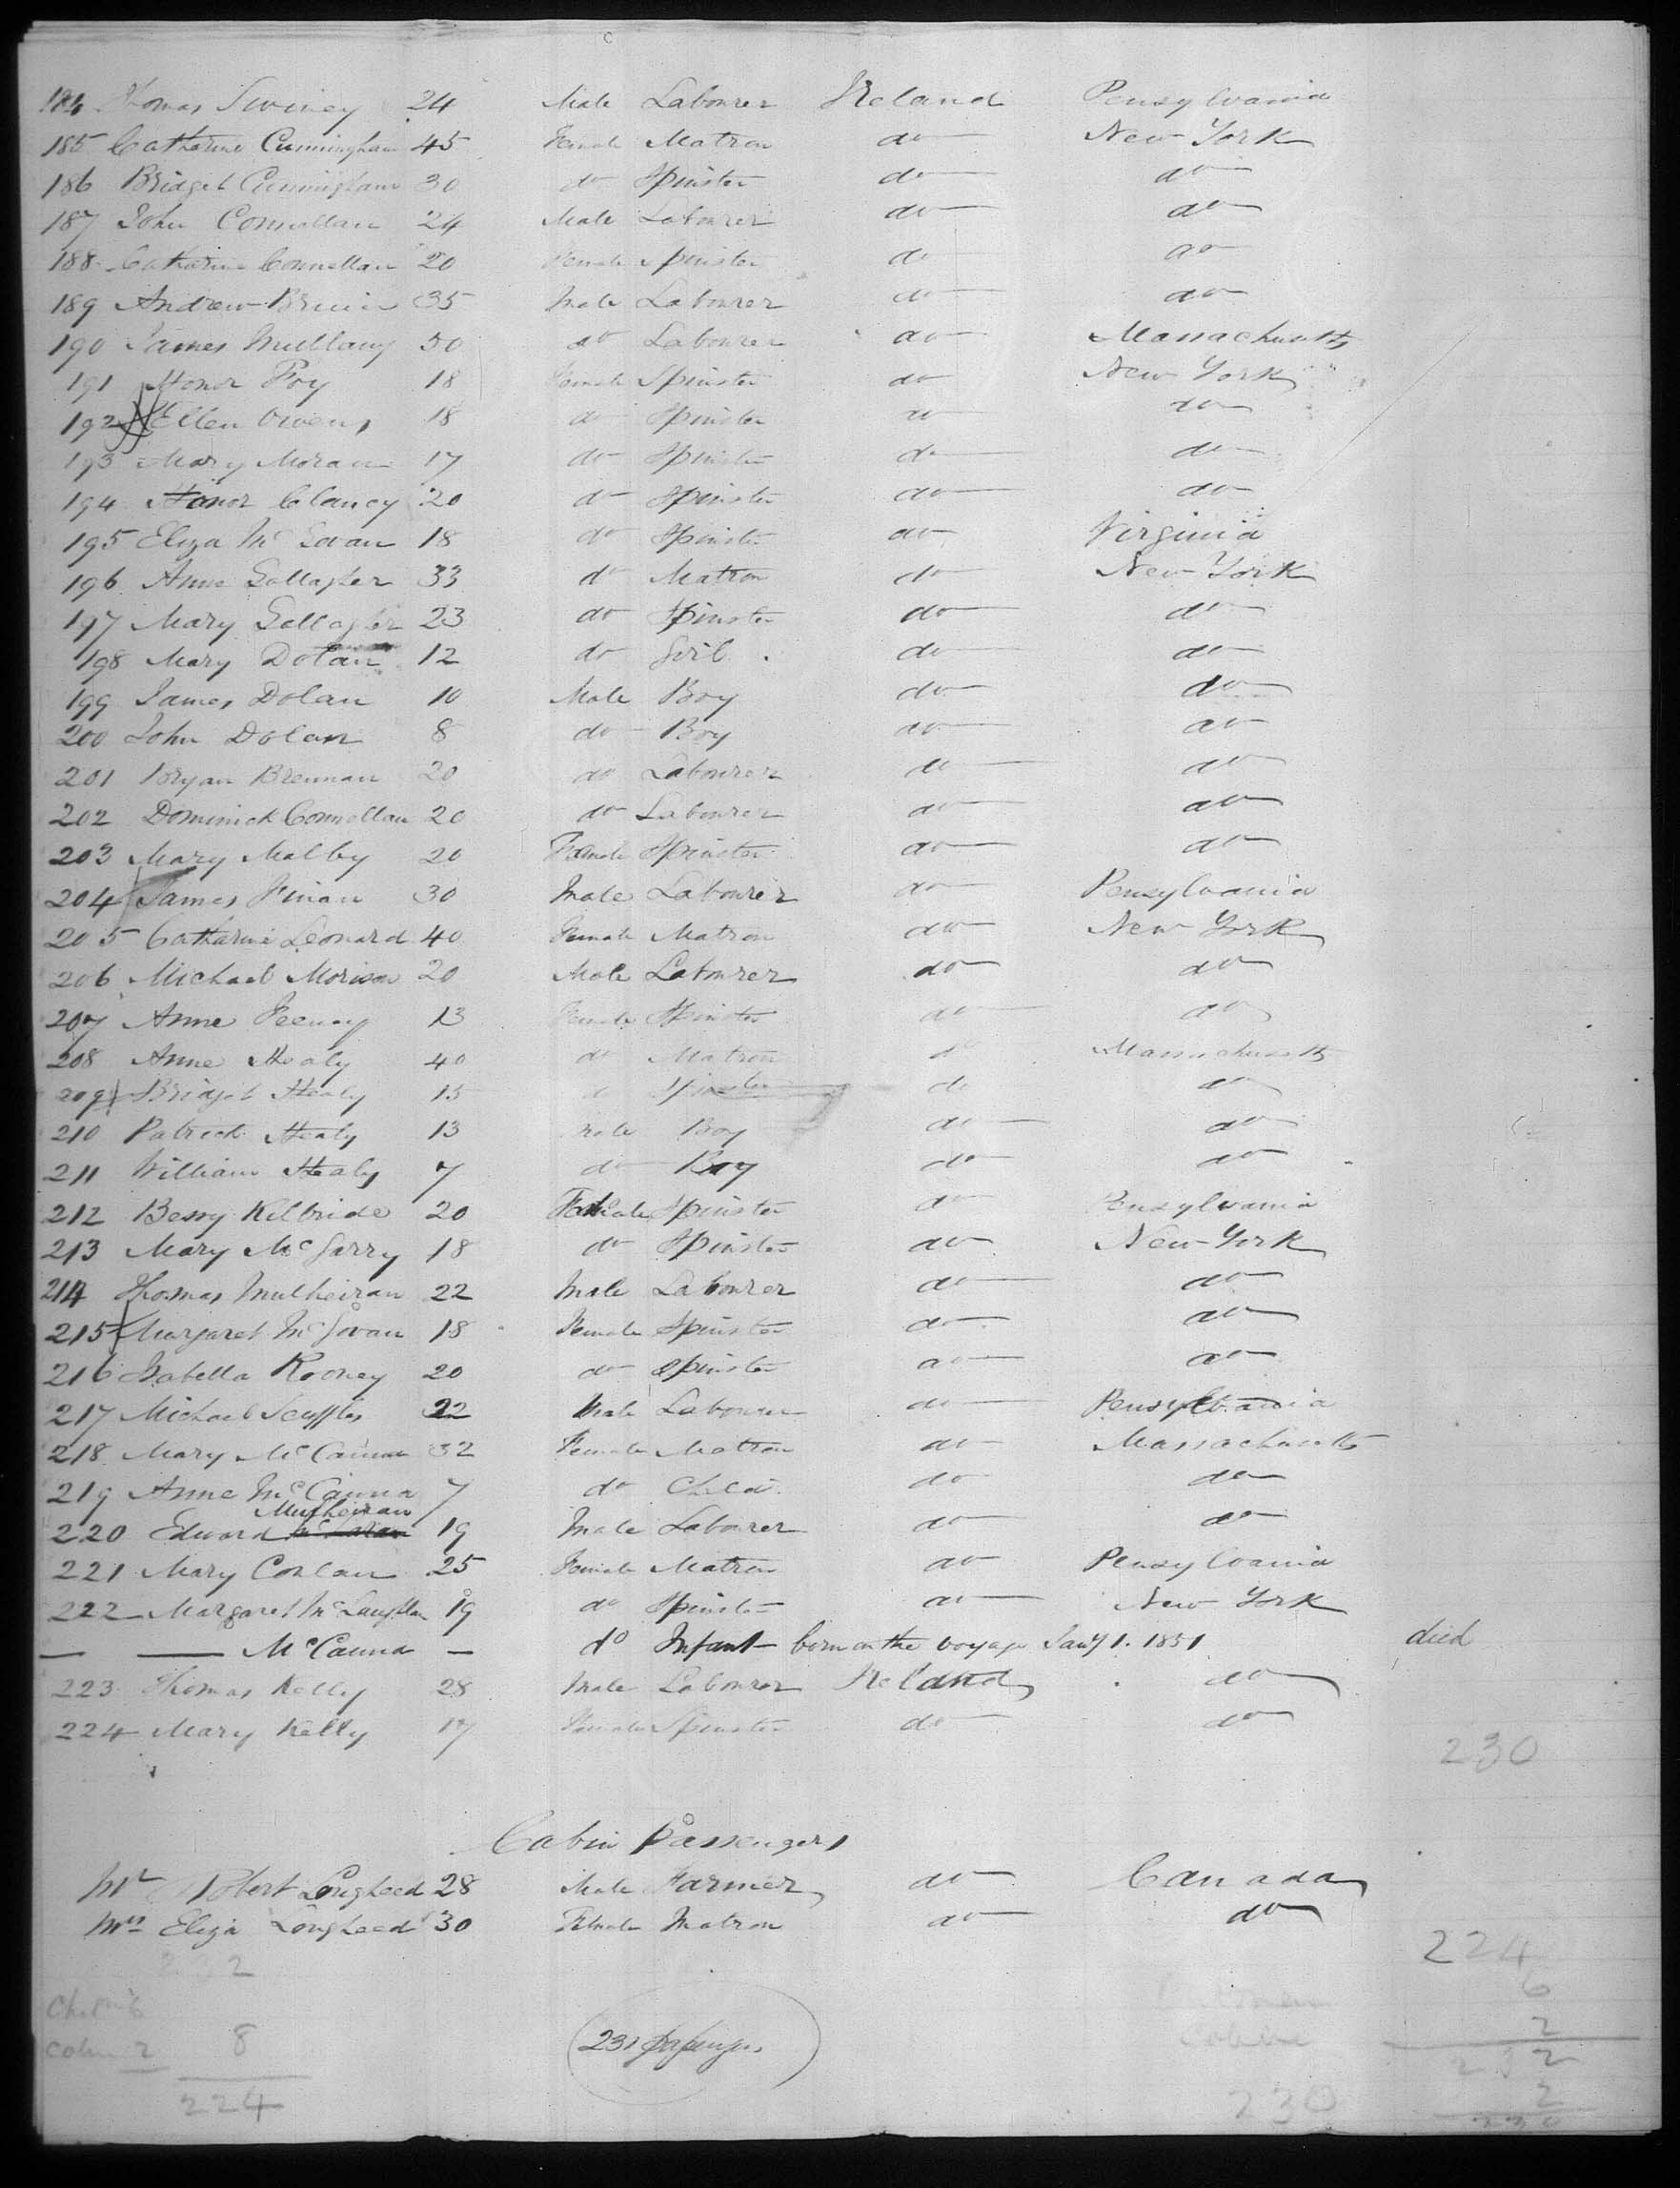 184 Thomas Swiney 24 Male Labourer Ireland Pensylvania
185 Catherine Cunningham 45 Female Matron do New York
186 Bridget Cunningham 30 do Spinster do do
187 John Connollan 24 Male Labourer do do
188 Catherine Connellan 20 Female Spinster do do
189 Andrew Bruin 35 Male Labourer do do
190 James Mullany 50 do Labourer do Massachusetts
191 Honor Foy 18 Female Spinster do New York
192 Ellen Owens 18 do Spinster do do
193 Mary Moran 17 do Spinster do do
194 Honor Clancy 20 do Spinster do do
195 Eliza McGovan 18 do Spinster do Virginia
196 Anne Gallagher 33 do Matron do New York
197 Mary Gallagher 23 do Spinster do do
198 Mary Dolan 12 do Girl do do
199 James Dolan 10 Male Boy do do
200 John Dolan 8 do Boy do do
201 Bryan Brennan 20 do Labourer do do
202 Dominick Connollan 20 do Labourer do do
203 Mary Malby 20 Female Spinster do do
204 James Finan 30 Male Labourer do Pensylvania
205 Catharine Leonard 40 Female Matron do New York
206 Michael Morison 20 Male Labourer do do
207 Anne Feeney 13 Female Spinster do do
208 Anne Healy 40 do Matron do Massachusetts
209 Bridget Healy 15 do Spinster do do
210 Patrick Healy 13 Male Boy do do
211 William Healy 7 do Boy do do
212 Bessy Kilbride 20 Female Spinster do Pensylvania
213 Mary McGarry 18 do Spinster do New York
214 Thomas Mulheiran 22 Male Labourer do do
215 Margaret McGovan 18 Female Spinster do do
216 Isabella Rooney 20 do Spinster do do
217 Michael Scuffles 22 Male Labourer do Pensylvania
218 Mary McCanna 32 Female Matron do Massachusetts
219 Anne McCanna 7 do Child do do
Mulheiran
220 Edward 19 Male Labourer do do
221 Mary Conlan 25 Female Matron do Pensylvania
222 Margaret McLaughlan 19 do Spinster do New York
— — McCanna — do Infant born on the voyage Jany 1. 1851 died
223 Thomas Kelly 28 Male Labourer Ireland do
224 Mary Kelly 17 Female Spinster do do
230
Cabin Passengers
Mr Robert Longheed 28 Male Farmer do Canada
Mrs Eliza Longheed 30 Female Matron do do
224
6
2
232
2
230
8
224
231 passengers
230